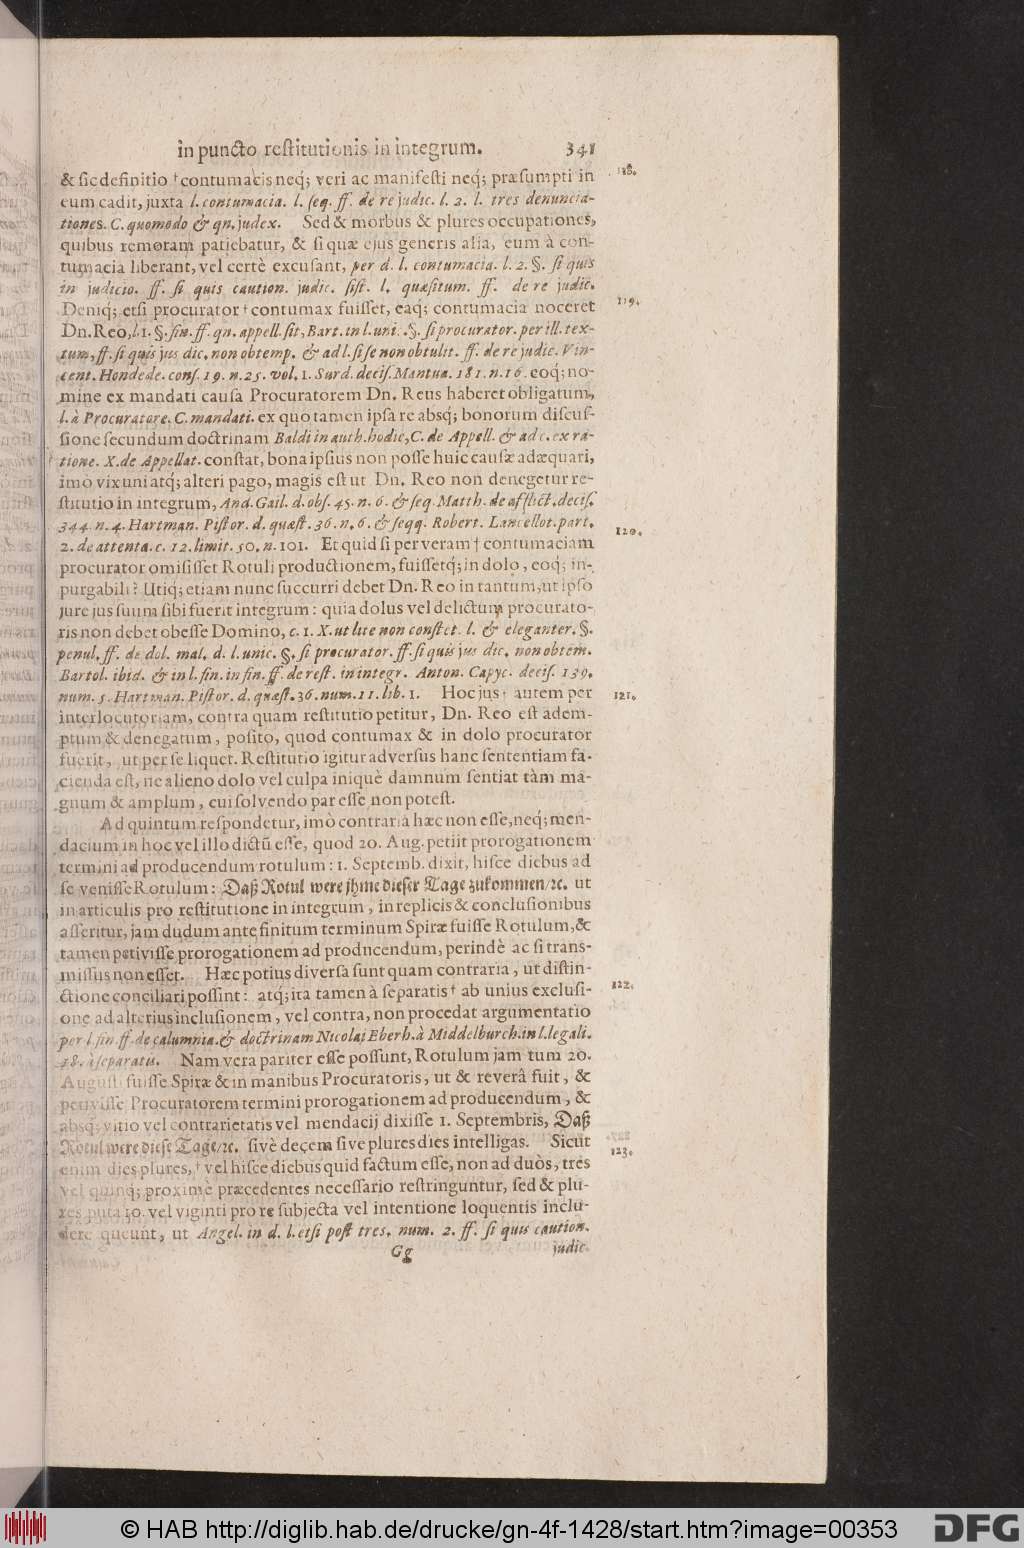 in puncto restitutionis in integrum. 341
& sic definitio † contumacis neq; veri ac manifesti neq; præsumpti in 118.
eum cadit, juxta l. contumacia. l. seq. ff. de re judic. l. 2. l. tres denuncia-
tiones. C. quomodo & qn. judex. Sed & morbus & plures occupationes,
quibus remoram patiebatur, & si quæ ejus generis alia, eum à con-
tumacia liberant, vel certè excusant, per d. l. contumacia. l. 2. §. si quis
in judicio. ff. si quis caution. judic. sist. l. quæsitum. ff. de re judic.
Deniq; etsi procurator † contumax fuisset, eaq; contumacia noceret 119.
Dn. Reo, l. 1. §. fin. ff. qn. appell. sit, Bart. in l. uni. §. si procurator. per ill. tex-
tum, ff. si quis jus dic. non obtemp. & ad l. si se non obtulit. ff. de re judic. Vin-
cent. Hondede. cons. 19. n. 25. vol. 1. Surd. decis. Mantua. 181. n. 16. eoq; no-
mine ex mandati causa Procuratorem Dn. Reus haberet obligatum,
l. à Procuratore. C. mandati. ex quo tamen ipsa re absq; bonorum discus-
sione secundum doctrinam Baldi in auth. hodie, C. de Appell. & ad c. ex ra-
tione. X. de Appellat. constat, bona ipsius non posse huic causæ adæquari,
imò vix uni atq; alteri pago, magis est ut Dn. Reo non denegetur re-
stitutio in integrum, And. Gail. d. obs. 45. n. 6. & seq. Matth. de afflict. decis.
344. n. 4. Hartman. Pistor. d. quæst. 36. n. 6. & seqq. Robert. Lancellot. part.
2. de attenta. c. 12. limit. 50. n. 101. Et quid si per veram † contumaciam 120.
procurator omisisset Rotuli productionem, fuissetq; in dolo, eoq; in-
purgabili? Utiq; etiam nunc succurri debet Dn. Reo in tantum, ut ipso
jure jus suum sibi fuerit integrum: quia dolus vel delictum procurato-
ris non debet obesse Domino, c. 1. X. ut lite non constet. l. & eleganter. §.
penul. ff. de dol. mal. d. l. unic. §. si procurator. ff. si quis jus dic. non obtem.
Bartol. ibid. & in l. fin. in fin. ff. de rest. in integr. Anton. Capyc. decis. 139.
num. 5. Hartman. Pistor. d. quæst. 36. num. 11. lib. 1. Hoc jus † autem per 121.
interlocutoriam, contra quam restitutio petitur, Dn. Reo est adem-
ptum & denegatum, posito, quod contumax & in dolo procurator
fuerit, ut per se liquet. Restitutio igitur adversus hanc sententiam fa-
cienda est, ne alieno dolo vel culpa iniquè damnum sentiat tàm ma-
gnum & amplum, cui solvendo par esse non potest.
Ad quintum respondetur, imò contraria hæc non esse, neq; men-
dacium in hoc vel illo dictũ esse, quod 20. Aug. petiit prorogationem
termini ad producendum rotulum: 1. Septemb. dixit, hisce diebus ad
se venisse Rotulum: Daß Rotul were jhme dieser Tage zukommen/ꝛc. ut
in articulis pro restitutione in integrum, in replicis & conclusionibus
asseritur, jam dudum ante finitum terminum Spiræ fuisse Rotulum, &
tamen petivisse prorogationem ad producendum, perindè ac si trans-
missus non esset. Hæc potius diversa sunt quam contraria, ut distin-
ctione conciliari possint: atq; ita tamen à separatis † ab unius exclusi- 122.
one ad alterius inclusionem, vel contra, non procedat argumentatio
per l. fin. ff. de calumnia. & doctrinam Nicolai Eberh. à Middelburch. in l. legali.
18. à separatis. Nam vera pariter esse possunt, Rotulum jam tum 20.
Augusti fuisse Spiræ & in manibus Procuratoris, ut & reverâ fuit, &
petivisse Procuratorem termini prorogationem ad producendum, &
absq; vitio vel contrarietatis vel mendacij dixisse 1. Septembris, Daß
Rotul were diese Tage/ꝛc. sivè decem sive plures dies intelligas. Sicut
enim dies plures, † vel hisce diebus quid factum esse, non ad duòs, tres 123.
vel quinq; proximè præcedentes necessario restringuntur, sed & plu-
res puta 10. vel viginti pro re subjecta vel intentione loquentis inclu-
dere queunt, ut Angel. in d. l. etsi post tres. num. 2. ff. si quis caution.
Gg judic.
© HAB http://diglib.hab.de/drucke/gn-4f-1428/start.htm?image=00353 DFG